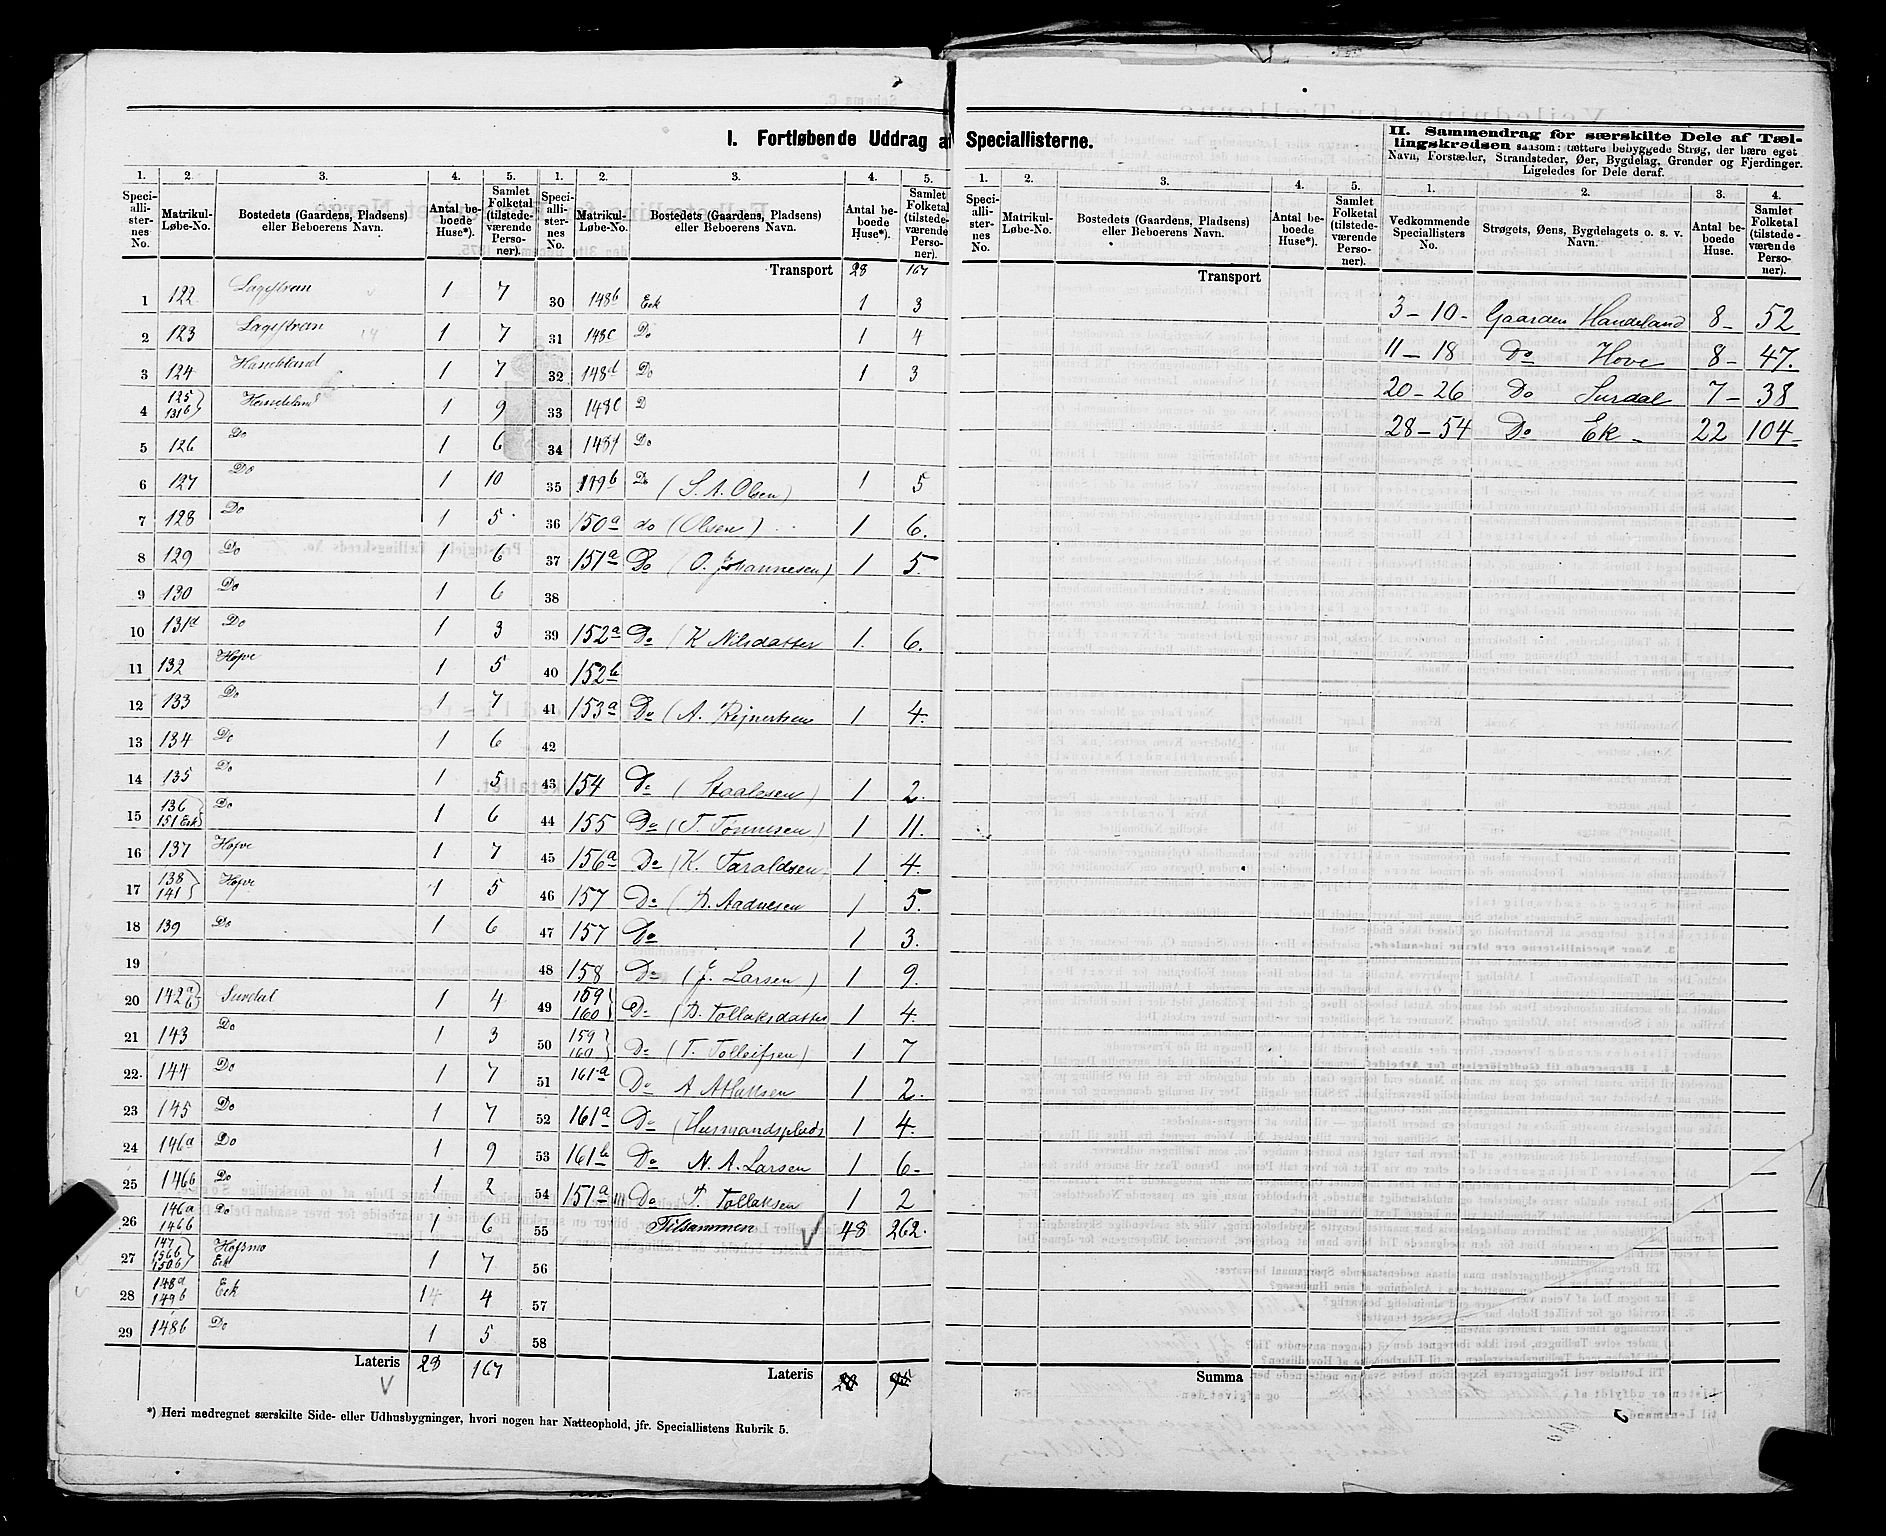 I. Fortløbende Uddrag af Speciallisterne.
1. 2. 3. 4. 5.
Speciallisternes No. Matrikul-Løbe-No. Bostedets (Gaardens, Pladsens) eller Beboerens Navn. Antal beboede Huse*). Samlet Folketal (tilstedeværende Personer).
1 122 1 7
2 123 1 7
3 124 1 7
4 125 131b 1 9
5 126 Do 1 6
6 127 Do 1 10
7 128 Do 1 5
8 129 Do 1 6
9 130 Do 1 6
10 131a Do 1 3
11 132 Hofve 1 5
12 133 Do 1 7
13 134 Do 1 6
14 135 Do 1 5
15 136 151 Eek Do 1 6
16 137 Hofve 1 7
17 138 141 Hofve 1 5
18 139 Do 1 6
19
20 142a b Surdal 1 4
21 143 Do 1 3
22 144 Do 1 7
23 145 Do 1 7
24 146a Do 1 9
25 146b Do 1 2
26 146a 146b Do 1 6
27 147 156b 150b Hofsmo Eek 1 7
28 148a 149b Eek 1 4
29 148b Do 1 5
Lateris 28 167
1. 2. 3. 4. 5.
Speciallisternes No. Matrikul-Løbe-No. Bostedets (Gaardens, Pladsens) eller Beboerens Navn. Antal beboede Huse*). Samlet Folketal (tilstedeværende Personer).
Transport 28 167
30 148b Eek 1 3
31 148c Do 1 4
32 148d Do 1 3
33 148e D
34 148f Do
35 149b Do (S. A. Olsen) 1 5
36 150a do (Olsen) 1 6.
37 151a Do (O. Johannesen) 1 5.
38
39 152a Do (K Nilsdatter 1. 6.
40 152b
41 153a Do (A. Rejnertsen 1 4.
42
43 154 Do (Staalesen) 1 2.
44 155 Do (T. Tønnesen) 1 11.
45 156a Do (K. Taraldsen 1 4.
46 157 Do ( Aadnesen 1 5.
47 157 Do 1 3.
48 158 Do (J. Larsen) 1 9.
49 159 160 Do ( Tollaksdatter 1 4.
50 159 160 Do (T. Tolleifsen) 1 7
51 161a Do A Atlaksen 1 2.
52 161a Do (Husmandsplads 1 4.
53 161b Do N. A. Larsen 1 6-
54 151a Do T. Tollaksen 1 2
55 Tilsammen 48 262.
56
57
58
Lateris
*) Heri medregnet særskilte Side- eller Udhusbygninger, hvori nogen har Natteophold, jfr. Speciallistens Rubrik 5.
1. 2. 3. 4. 5.
Speciallisternes No. Matrikul-Løbe-No. Bostedets (Gaardens, Pladsens) eller Beboerens Navn. Antal beboede Huse*). Samlet Folketal (tilstedeværende Personer).
Transport
Summa
II. Sammendrag for særskilte Dele af Tællingskredsen saasom: tættere bebyggede Strøg, der bære eget Navn, Forstæder, Strandsteder, Øer, Bygdelag, Grender og Fjerdinger. Ligeledes for Dele deraf.
1. 2. 3. 4.
Vedkommende Speciallisters No. Strøgets, Øens, Bygdelagets o. s. v. Navn. Antal beboede Huse. Samlet Folketal (tilstedeværende Personer).
3-10- Gaarden Handeland 8- 52
11-18 Do Hove 8- 47.
20-26 Do Surdal 7- 38
28-54 Do Ek - 22 104-